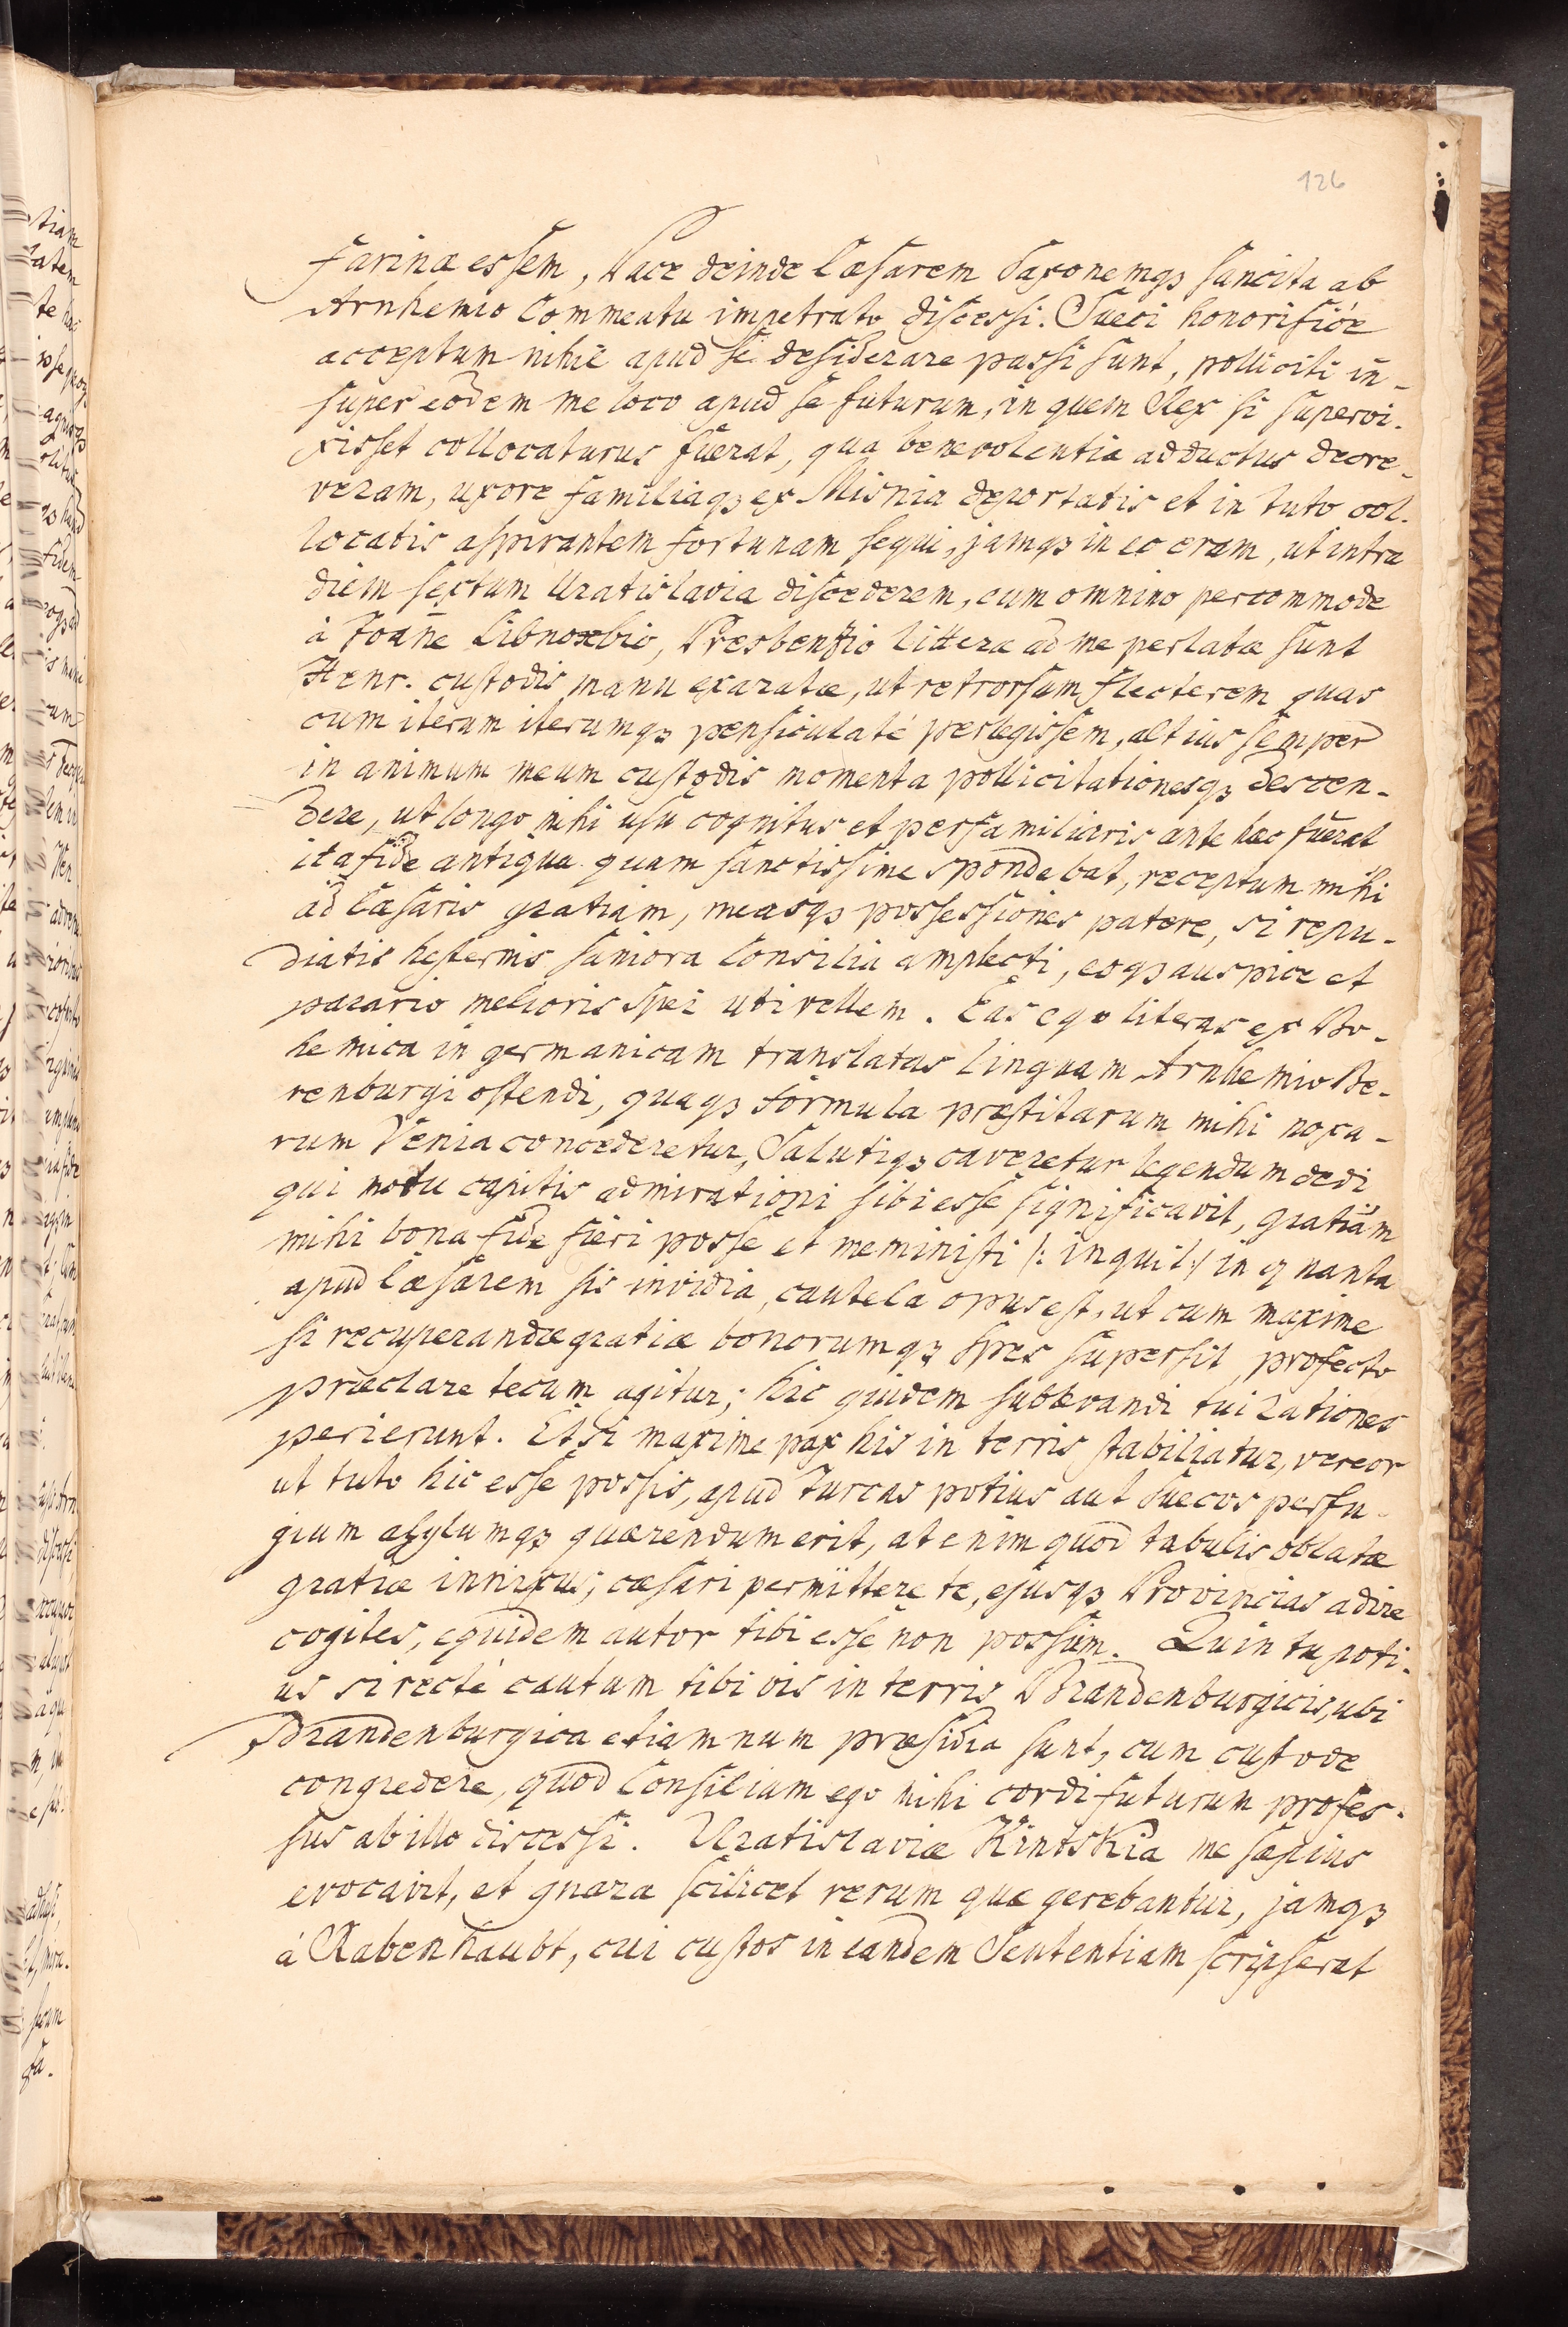 126
farinæ essem, Pace deinde Cæsarem Saxonemqз sancita ab
Arnhemio Commeatu impetrato discessi. Sueci honorificè
acceptum nihil apud se desiderare passi sunt, polliciti in-
super eodem me loco apud se futurum, in quem Rex si supervi-
xisset collocaturus fuerat, qua benevolentia adductus decre-
veram, uxore familiaqз ex Misnia deportatis et in tuto col-
locatis aspirantem fortunam sequi, jamqз in eo eram, ut intra
diem sextum Uratislavia discederem, cum omnino percommode
à Joañe Libnoxbio, Presbenzio litteræ ad me perlatæ sunt
Henr. custodis manu exaratæ, ut retrorsum flecterem quas
cum iterum iterumqз pensiculatè perlegissem, altius semper
in animum meum custodis momenta pollicitationesqз descen-
dere, ut longo mihi usu cognitus et perfamiliaris ante hac fuerat
ita fide antiqua quam sanctissime spondebat, receptum mihi
ad Cæsaris gratiam, measqз possessiones patere, si repu-
diatis hesternis saniora Consilia amplecti, eoqз auspice et
parario melioris spei uti vellem. Eas ego literas ex Bo-
hemica in germanicam translatas linguam Arnhemio Be-
renburgi ostendi, quaqз formula præstitarum mihi noxa-
rum Venia concederetur, Salutiqз caveretur legendum dedi
qui motu capitis admirationi sibi esse significavit, gratiam
mihi bona fide fieri posse et meministi /: inquit :/ in quanta
apud Cæsarem sis invidia, cautela opus est, ut cum maxime
si recuperandæ gratiæ bonorumqз spes supersit, profecto
præclare tecum agitur; hic quidem sublevandi tui rationes
perierunt. Etsi maxime pax his in terris stabiliatur, vereor
ut tuto hic esse possis, apud Turcas potius aut Suecos perfu-
gium asylumqз quærendum erit, at enim quod tabulis oblatæ
gratiæ innixus, cæsari permittere te, ejusqз Provincias adire
cogites, equidem autor tibi esse non possum. Quin tu poti-
us si rectè cautum tibi vis in terris Brandenburgicis, ubi
Brandenburgica etiamnum præsidia sunt, cum custode
congredere, quod Consilium ego mihi cordi futurum profes-
sus ab illo discessi. Uratislaviæ Kintskia me sæpius
evocavit, et gnara scilicet rerum quæ gerebantur, jamqз
à Rabenhaubt, cui custos in eandem Sententiam scripserat